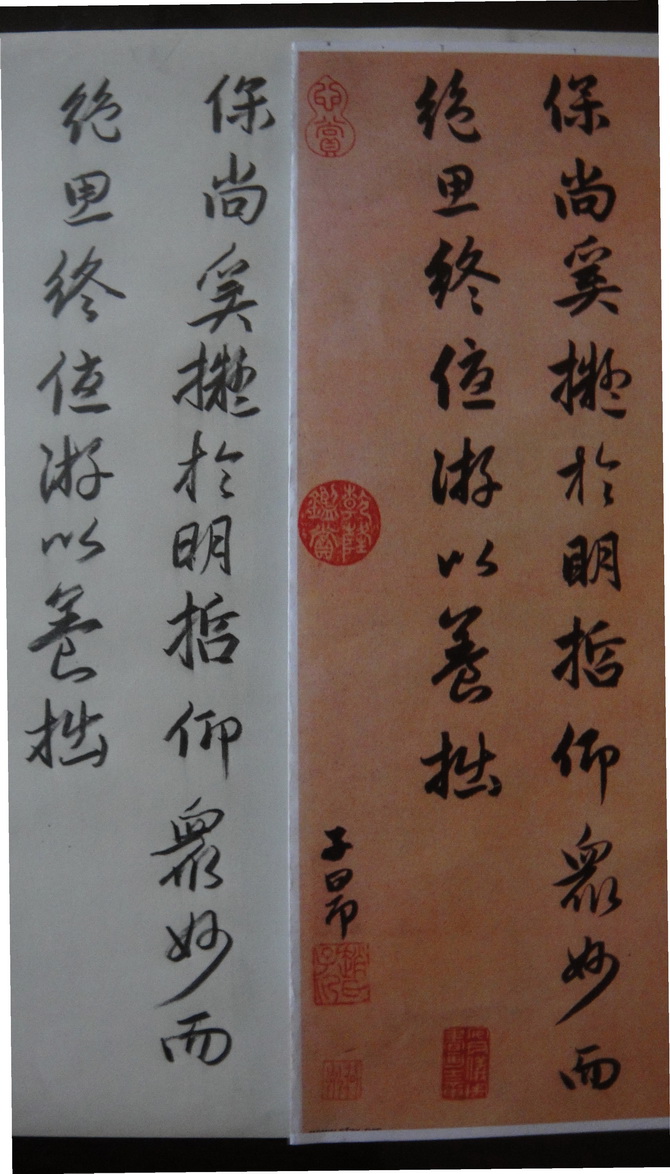 保尚奚擬於明哲仰衆妙而
絕思終優游以養拙
子昂
心賞
乾隆鑑賞
趙氏子昂
保尚奚擬於明哲仰衆妙而
絕思終優游以養拙